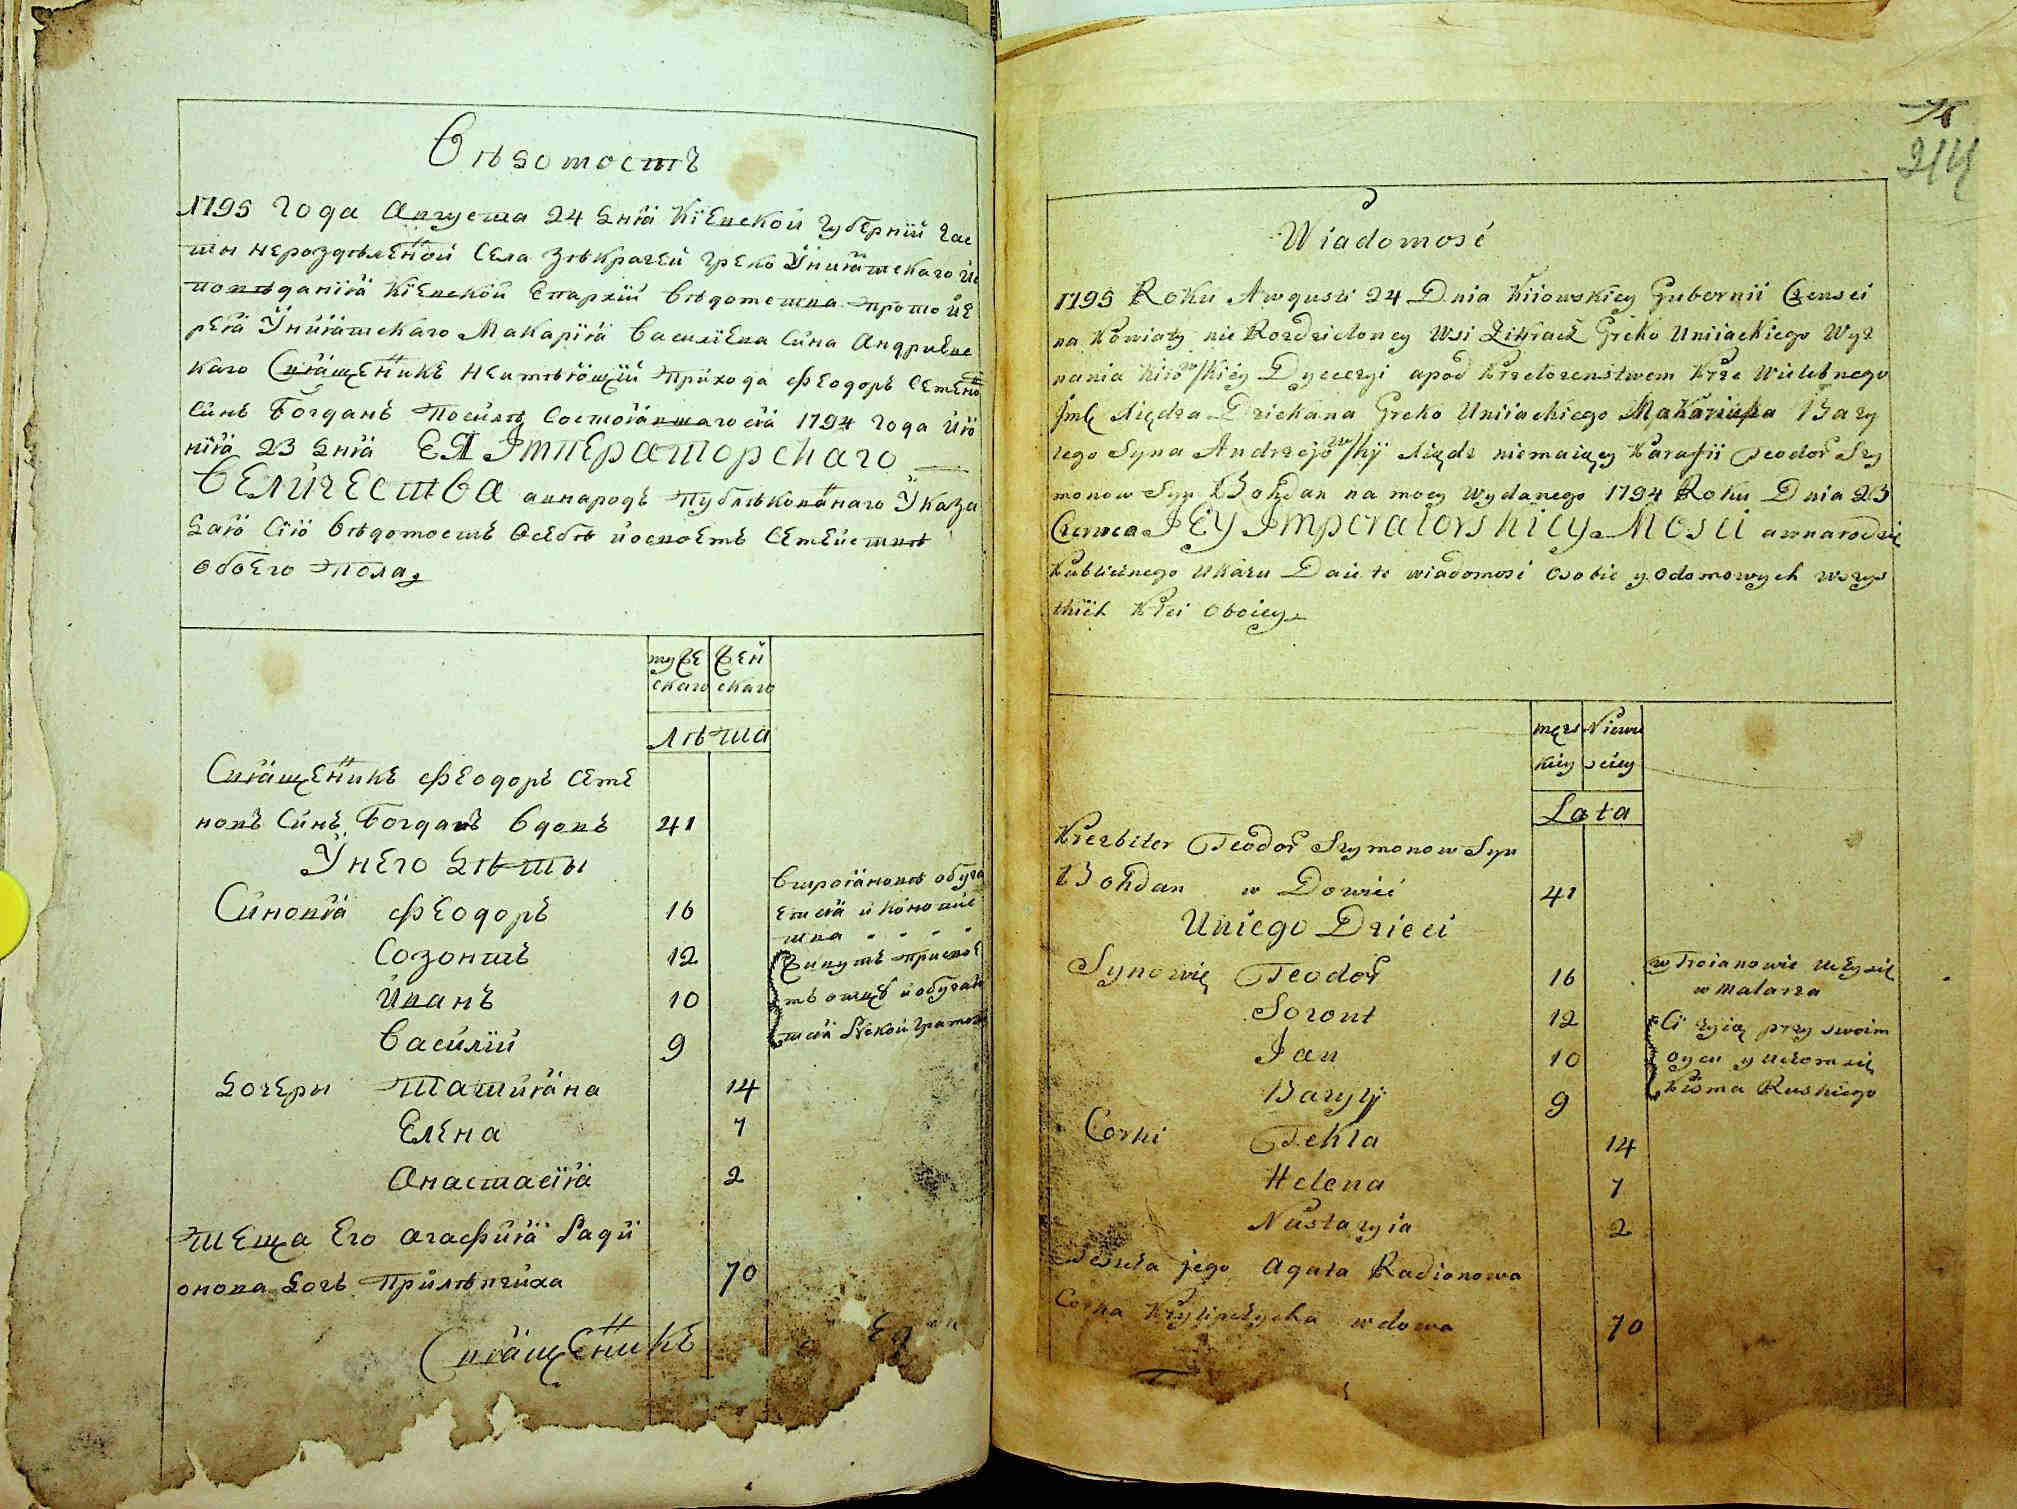 Вѣдомость
1795 года Августа 24 дня Кіевской губерніи час
ти нероздѣленной села Зѣкрачей греко Униятского йс
поведанія Кіевской Епархіи вѣдомства протоіе
рея Униятского Макарія Василіева сина Андриевс
каго Священникъ неимѣющій прихода Феодоръ Семено
синъ Богданъ посилѣ состоявшагося 1794 года ию
ния 23 дня ЕЯ Імператорскаго
Величества внародъ публѣкованнаго Указа
даю сію вѣдомость осебѣ й освоемъ семействѣ
обоего пола
муже жен
скаго скаго
лѣта
Священникъ Феодоръ Семе
новъ синъ Богданъ вдовъ 41
У него дѣти
Синовя Феодоръ 16
Созонтъ 12
Иванъ 10
Василій 9
втрояновѣ обуча
ется иконопис
тва
живутъ присвое
мъ отцѣ и обучаю
тся Руской грамоти
дочери Татияна 14
Елена 7
Анастасія 2
теща его Агафия Ради
онова дочь Прилѣпчиха 70
Священникъ
214
Wiadomosć
1795 Roku Awgusti 24 Dnia Kiiowskiey Gubernii Czensci
na Powiaty nie Rozdzieloney Wsi Zikracz Greko Uniiackiego Wyz
nania Kiiowskiey Dyecezyi apod Przełozenstwem Prze Wielebnego
Jmc Xiędza Dziekana Greko Uniiackiego Makariusza Bazy
lego Syna Andrzejowski Xiądz niemaiący Parafii Teodor Szy
monow Syn Bohdan na mocy wydanego 1794 Roku Dnia 23
Czerwca JEY Imperatorskiey Mosci awnarodzie
Publicznego Ukazu Daie te wiadomosć Osobie y odomowych wszys
tkich Płci oboiey
męz Niewie
kiey sciey
Lata
Prezbiter Teodor Szymonow Syn
Bohdan w Dowiec 41
Uniego Dzieci
Synowie Teodor 16
Sozont 12
Jan 10
Bazyly 9
w Troianowie uczy się
w Malarza
Ci zyią przy swoim
oycu y uczom się
Pisma Ruskiego
Corki Tekla 14
Helena 7
Nastazyia 2
jego Agata Radionowa
Corka Przylipczycha wdowa 70